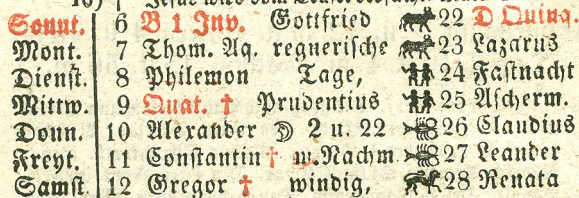 Sonnt. 6 B 1 Inv. Gottfried 22 D Quinq.
Mont. 7 Thom. Aq. regnerische 23 Lazarus
Dienst. 8 Philemon Tage, 24 Fastnacht
Mittw. 9 Quat. † Prudentius 25 Ascherm.
Donn. 10 Alexander ☽ 2 u. 22 26 Claudius
Freyt. 11 Constantin † w. Nachm 27 Leander
Samst. 12 Gregor † windig, 28 Renata